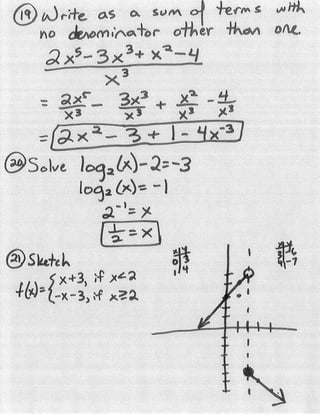 (19) Write as a sum of terms with
no denominator other than one.
2x⁵-3x³+x²-4
x³
= 2x⁵/x³ - 3x³/x³ + x²/x³ - 4/x³
= 2x² - 3 + 1 - 4x⁻³
(20) Solve log₂(x)-2=-3
log₂(x)=-1
2⁻¹=x
1/2=x
(21) Sketch
f(x)={x+3, if x<2
-x-3, if x≥2
x|y
0|3
1|4